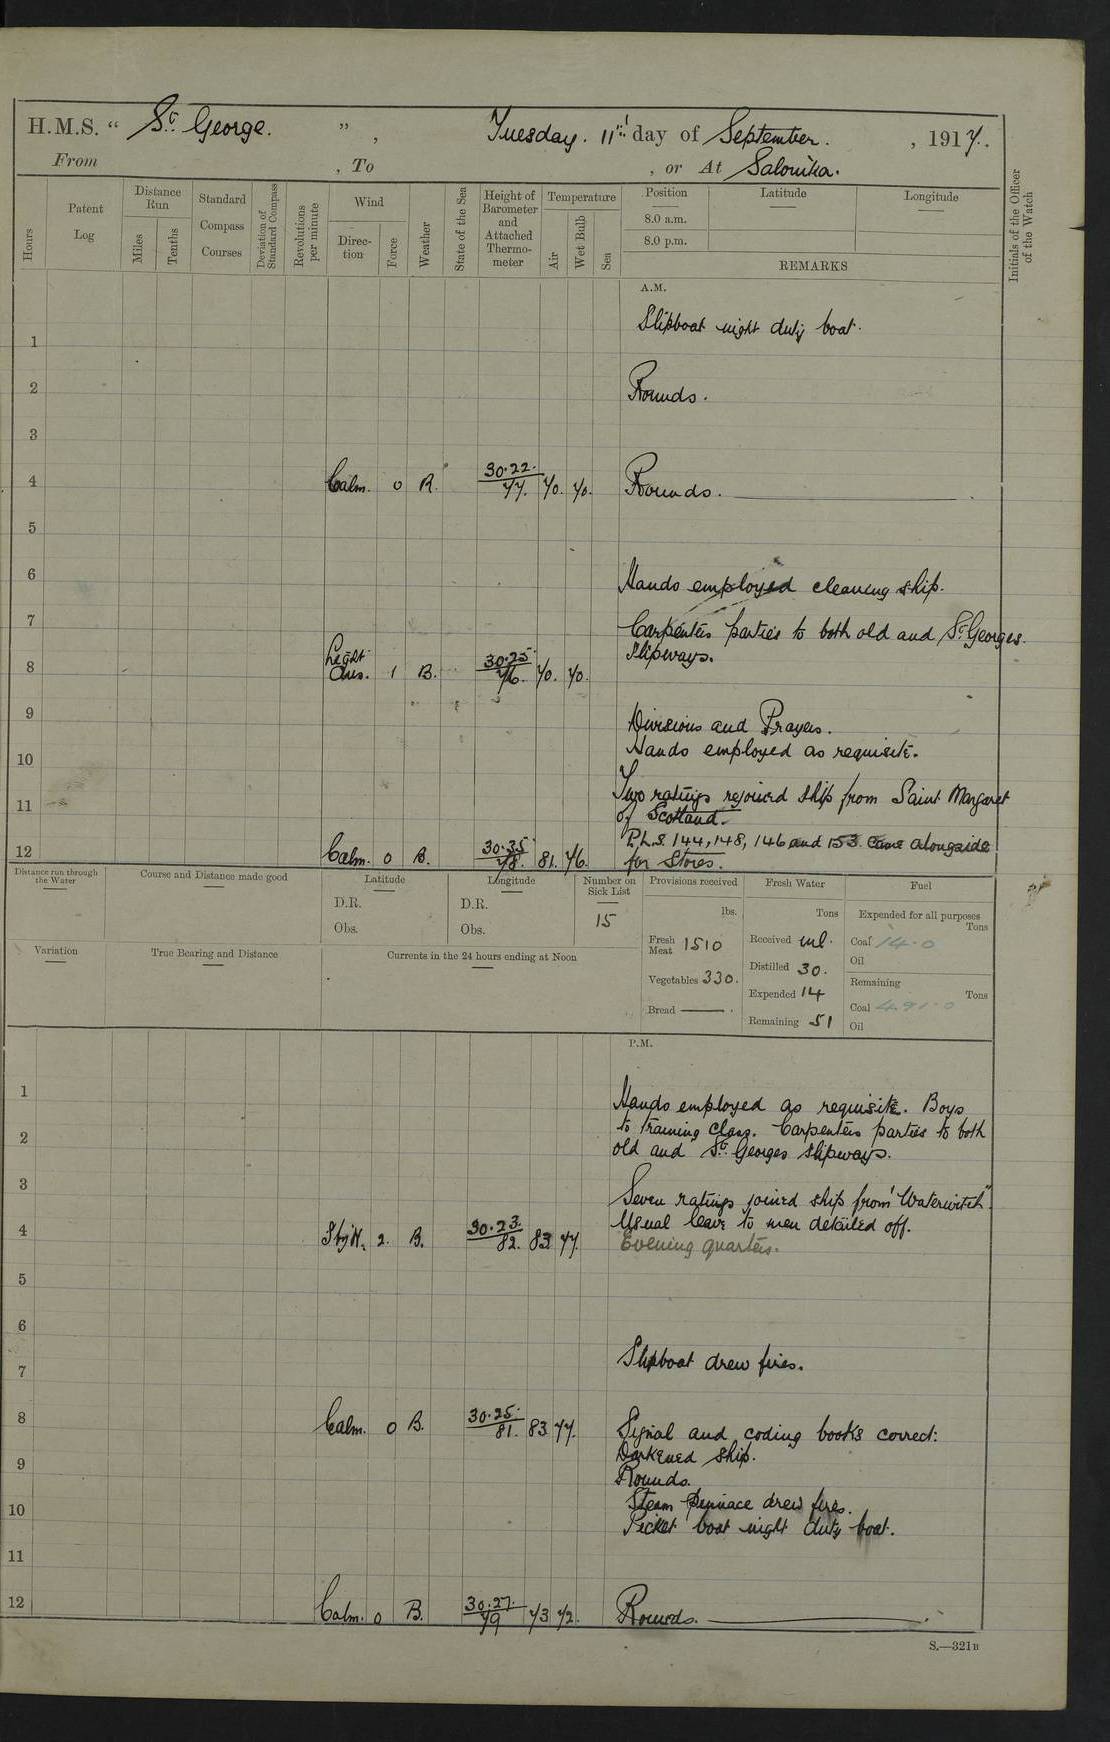 H.M.S. “ St George. ”, Tuesday. 11th day of September. , 1917.
From , To , or At Salonika.
Hours
Patent Log
Distance Run
Miles
Tenths
Standard Compass Courses
Deviation of Standard Compass
Revolutions per minute
Wind
Direction
Force
Weather
State of the Sea
Height of Barometer and Attached Thermometer
Temperature
Air
Wet Bulb
Sea
Position
Latitude
Longitude
8.0 a.m.
8.0 p.m.
REMARKS
Initials of the Officer of the Watch
A.M.
1 Slipboat night duty boat.
2 Rounds.
3
4 Calm. 0 B. 30.22. 77. 70. 70. Rounds.
5
6 Hands employed cleaning ship.
7 Carpenters parties to both old and St Georges.
slipways.
8 Light Airs. 1 B. 30.25. 76. 70. 70.
9 Divisions and Prayers.
Hands employed as requisite.
10
Two ratings rejoined ship from Saint Margaret
11 of Scotland.
P.L.S. 144, 148, 146 and 153 came alongside
12 Calm. 0 B. 30.35. 78. 81. 76. for Stores.
Distance run through the Water
Course and Distance made good
Latitude
D.R.
Obs.
Longitude
D.R.
Obs.
Number on Sick List
15
Provisions received
lbs.
Fresh Meat 1510
Vegetables 330.
Bread
Fresh Water
Tons
Received nil.
Distilled 30.
Expended 14
Remaining 51
Fuel
Expended for all purposes
Tons
Coal 14.0
Oil
Remaining
Tons
Coal 491.0
Oil
Variation
True Bearing and Distance
Currents in the 24 hours ending at Noon
P.M.
1 Hands employed as requisite. Boys
2 to training class. Carpenters parties to both
old and St Georges slipways.
3
Seven ratings joined ship from "Waterwitch".
Usual leave to men detailed off.
4 2. B. 30.23. 82. 83 77. Evening quarters.
5
6
Slipboat drew fires.
7
8 Calm. 0 B. 30.25. 81. 83 77. Signal and coding books correct:
Darkened ship.
9 Rounds.
Steam Pinnace drew fires.
10 Picket boat night duty boat.
11
12 Calm. 0 B. 30.27. 79 73 72. Rounds.
S.—321B